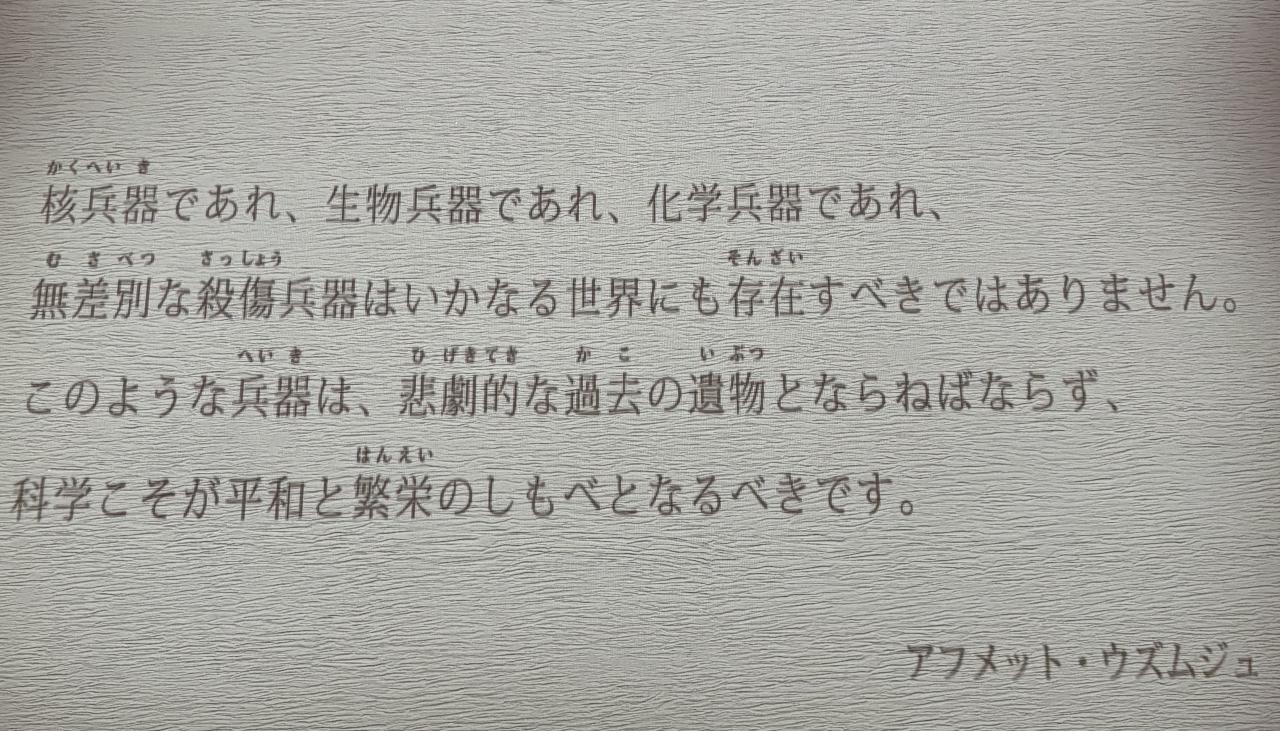 かくへいき
核兵器であれ、生物兵器であれ、化学兵器であれ、
むさべつ さっしょう そんざい
無差別な殺傷兵器はいかなる世界にも存在すべきではありません。
へいき ひげきてき かこ いぶつ
このような兵器は、悲劇的な過去の遺物とならねばならず、
はんえい
科学こそが平和と繁栄のしもべとなるべきです。
アフメット・ウズムジュ